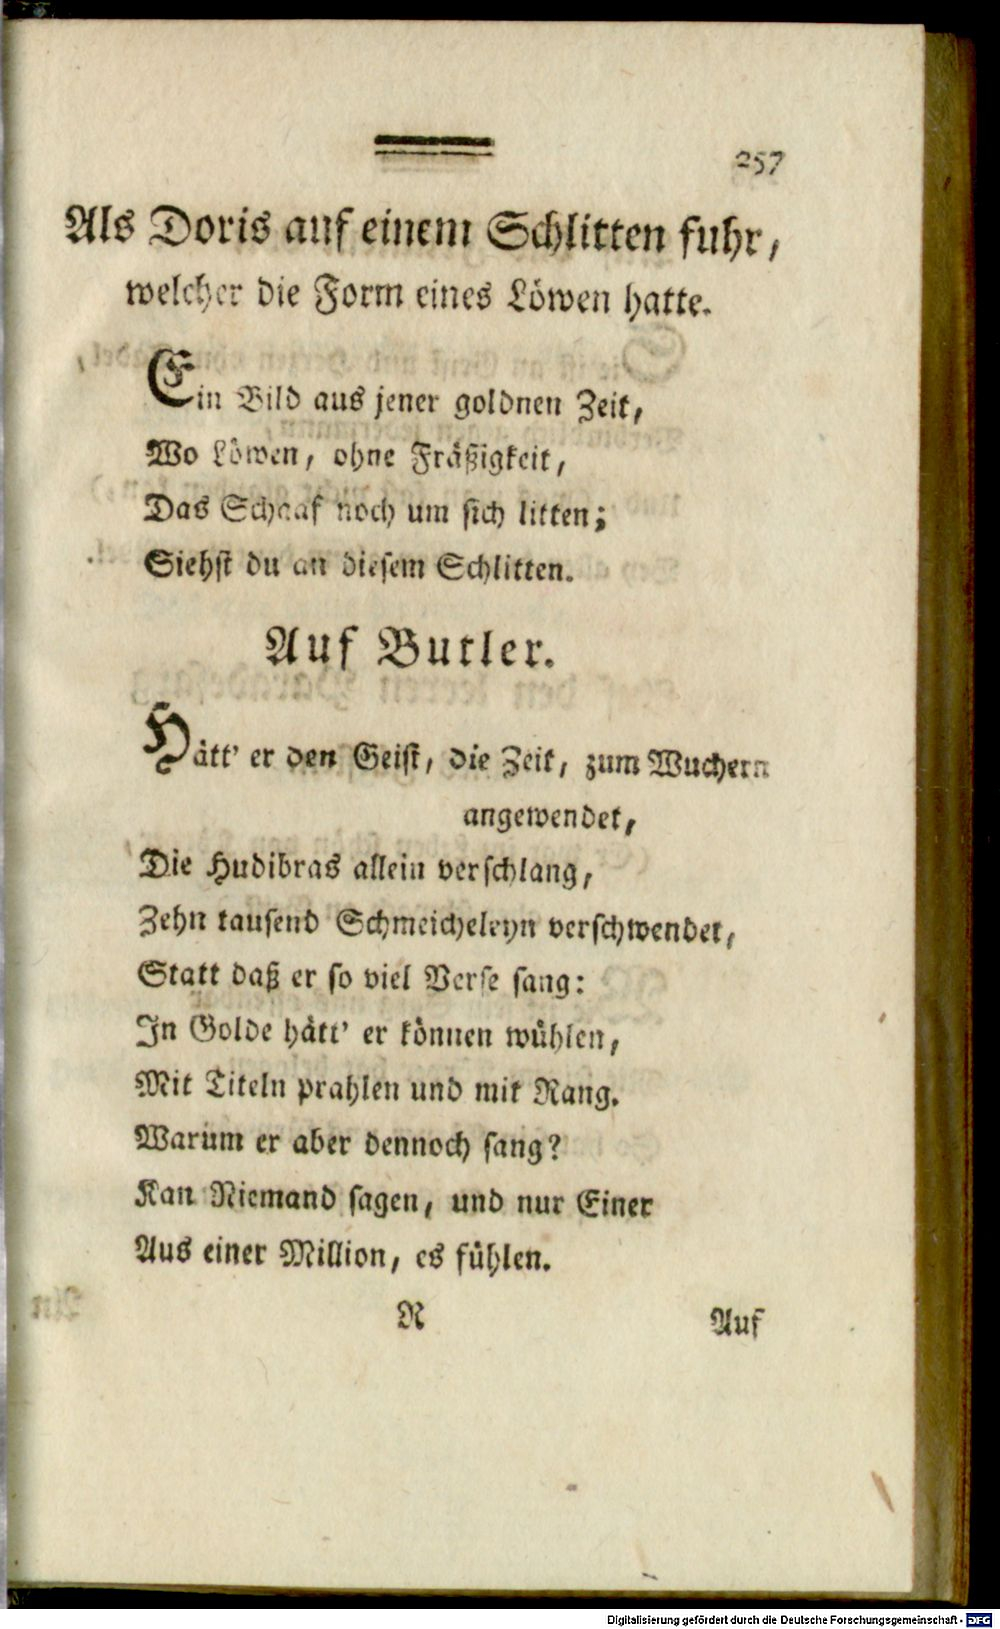 257
Als Doris auf einem Schlitten fuhr,
welcher die Form eines Löwen hatte.
Ein Bild aus jener goldnen Zeit,
Wo Löwen, ohne Fräßigkeit,
Das Schaaf noch um sich litten;
Siehst du an diesem Schlitten.
Auf Butler.
Hätt' er den Geist, die Zeit, zum Wuchern
angewendet,
Die Hudibras allein verschlang,
Zehn tausend Schmeicheleyn verschwendet,
Statt daß er so viel Verse sang:
In Golde hätt' er können wühlen,
Mit Titeln prahlen und mit Rang.
Warum er aber dennoch sang?
Kan Niemand sagen, und nur Einer
Aus einer Million, es fühlen.
R
Auf
Digitalisierung gefördert durch die Deutsche Forschungsgemeinschaft - DFG